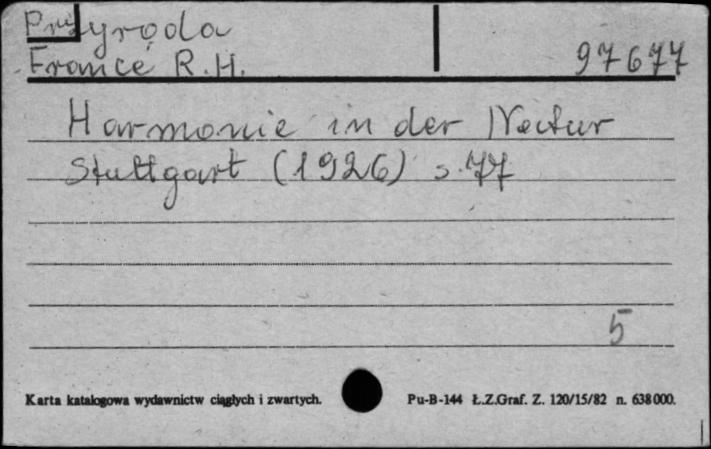 Przyroda
Francé R.H. 97677
Harmonie in der Natur
Stuttgart (1926) s. 77
5
Karta katalogowa wydawnictw ciągłych i zwartych. Pu-B-144 Ł.Z.Graf. Z. 120/15/82 n. 638000.